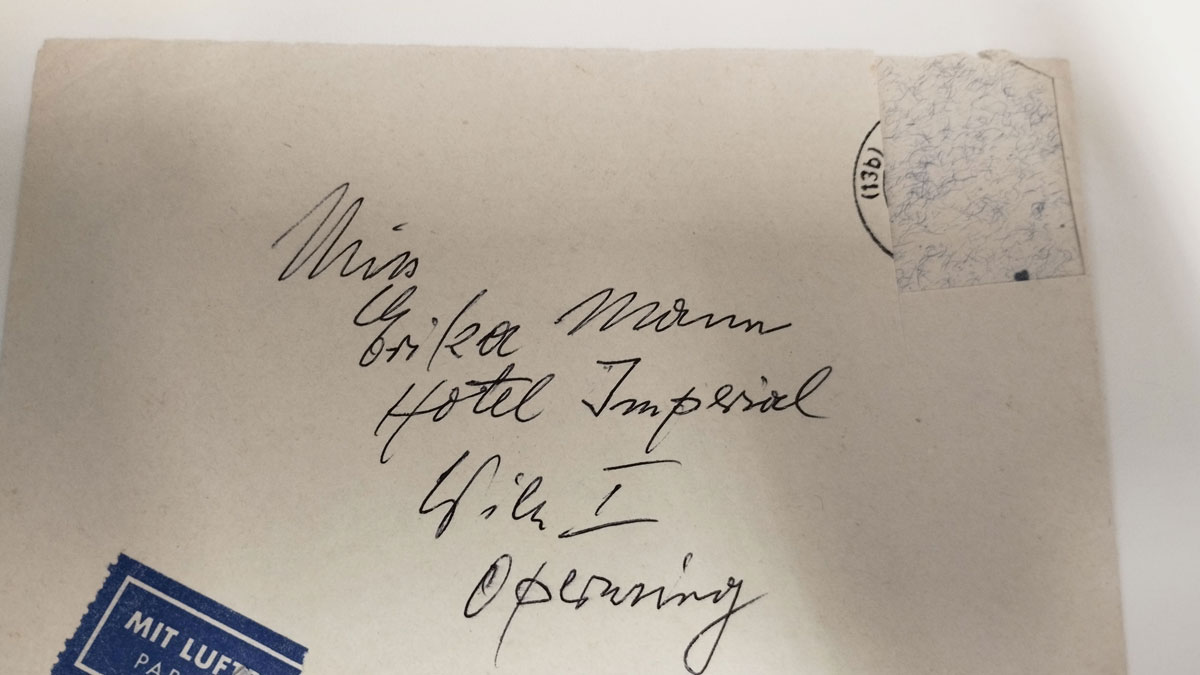 (13b)
Miss
Erika Mann
Hotel Imperial
Wien I
Opernring
MIT LUFT
PAR